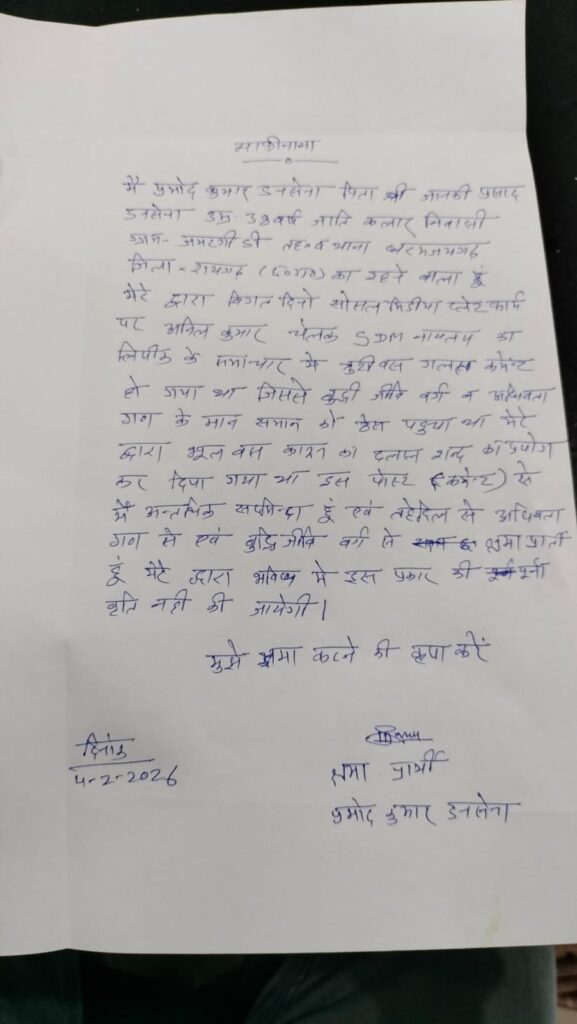 माफीनामा
मैं प्रमोद कुमार डनसेना पिता श्री जानकी प्रसाद
डनसेना उम्र 38 वर्ष जाति कलार निवासी
ग्राम - जमरगी डी तह0 व थाना धरमजयगढ़
जिला - रायगढ़ (छ0ग0) का रहने वाला हूं
मेरे द्वारा विगत दिनो सोसल मिडीया प्लेटफार्म
पर अनिल कुमार चेलक SDM का
के समांचार में त्रुटी वस गलत कमेंट
हो गया था जिससे बुद्धी जीवि वर्ग व अधिवक्ता
गण के मान सम्मान को ठेस पहुचा था मेरे
द्वारा भूल वस कारन का दलाल शब्द का प्रयोग
कर दिया गया था इस पोस्ट (कमेन्ट) से
में हूं एवं तहेदिल से अधिवक्ता
गण से एवं बुद्धि जीवि वर्ग से क्षमा प्रार्थी
हूं मेरे द्वारा भविष्य मे इस प्रकार की
नही की जायेगी।
मुझे क्षमा करने की कृपा करें
दिनांक
4-2-2026
क्षमा प्रार्थी
प्रमोद कुमार डनसेना